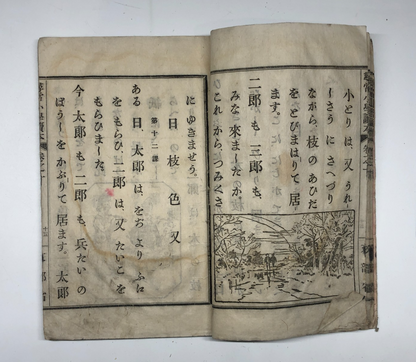 小とりは、又 うれ
しさう に さへづり
ながら、枝 の あひだ
を とびまはり て 居
ます。
二郎 も、三郎 も、
みな 來ました か
これ から、つみくさ
に ゆきませう。
日 枝 色 又
第十二課
ある 日、太郎 は、をぢ より ふに
を もらひ、二郎 は 又 たいこ を
もらひました。
今、太郎 も、二郎 も、兵たい の
ぼうし を かぶりて 居ます。太郎